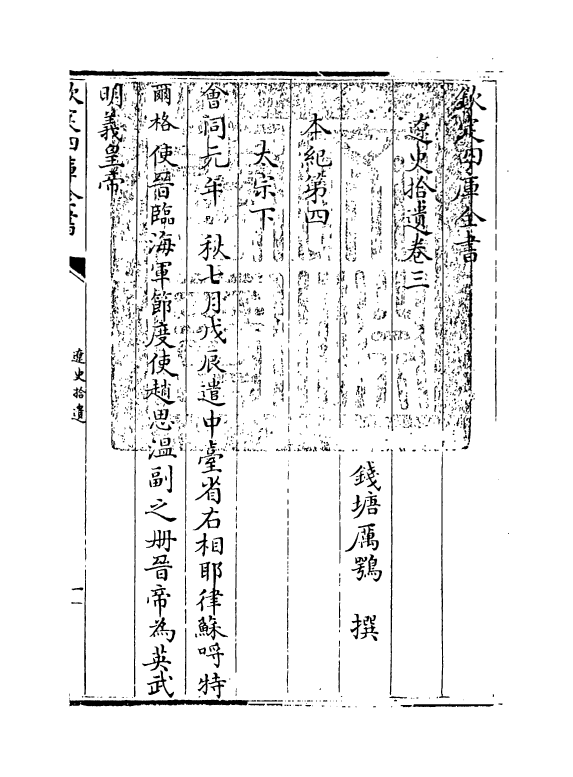 欽定四庫全書
遼史拾遺卷三
錢塘厲鶚　撰
本紀第四
太宗下
會同元年　秋七月戊辰遣中臺省右相耶律蘇呼特
爾格使晉臨海軍節度使趙思溫副之册晉帝為英武
明義皇帝
欽定四庫全書
遼史拾遺
一